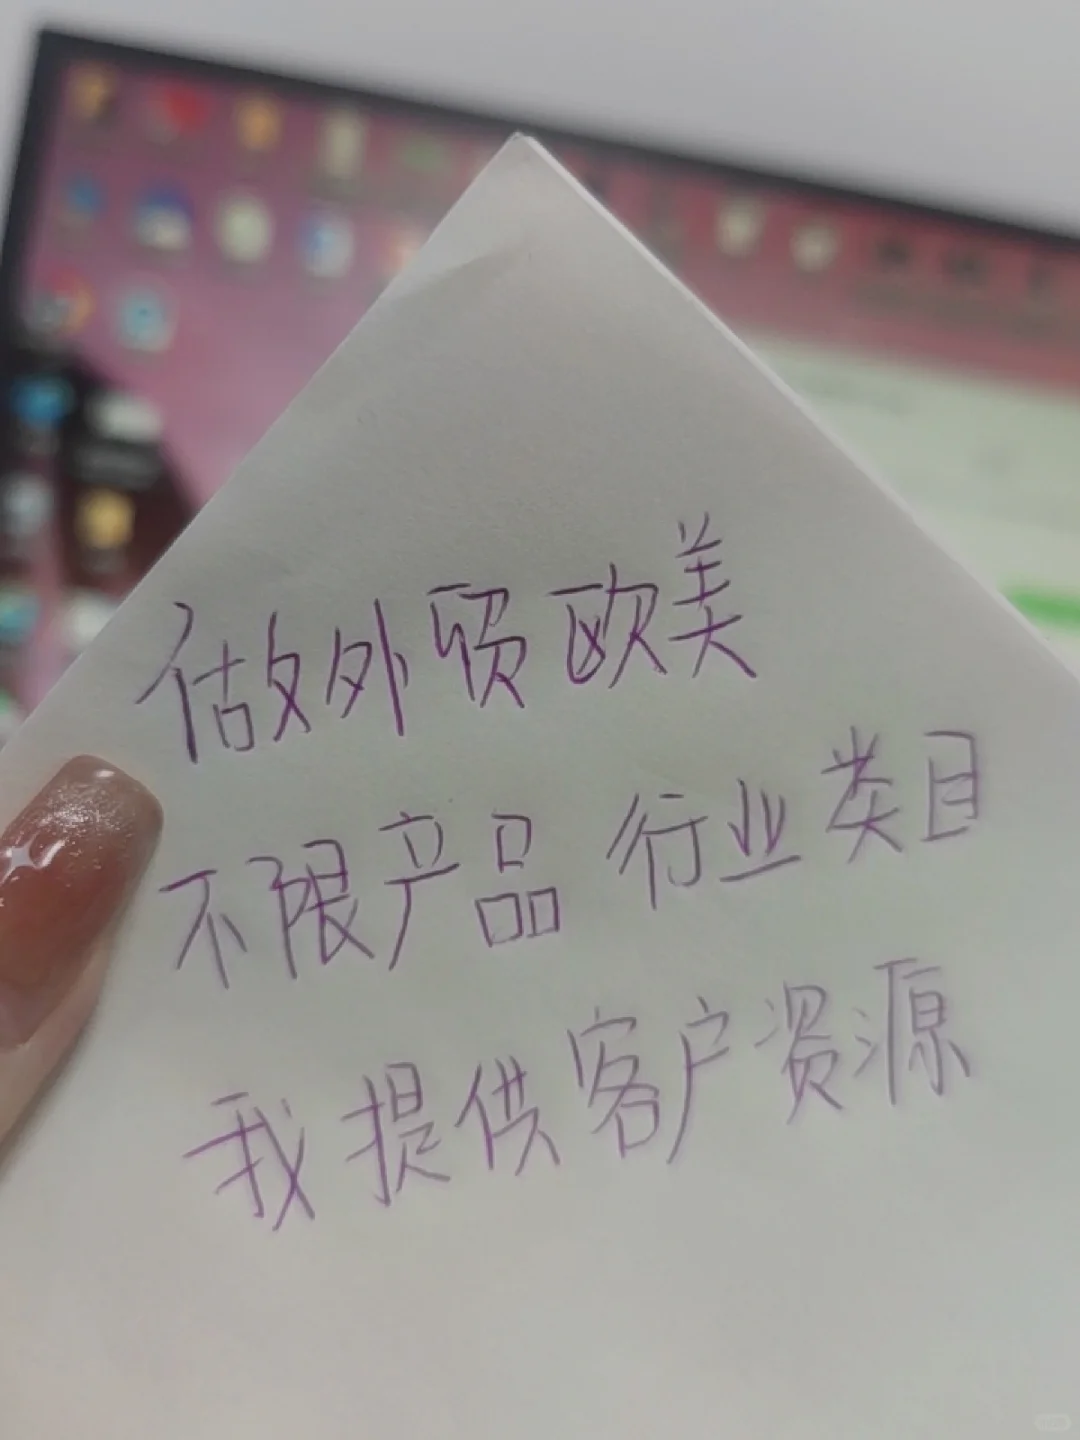 做外贸欧美
不限产品 行业类目
我提供客户资源